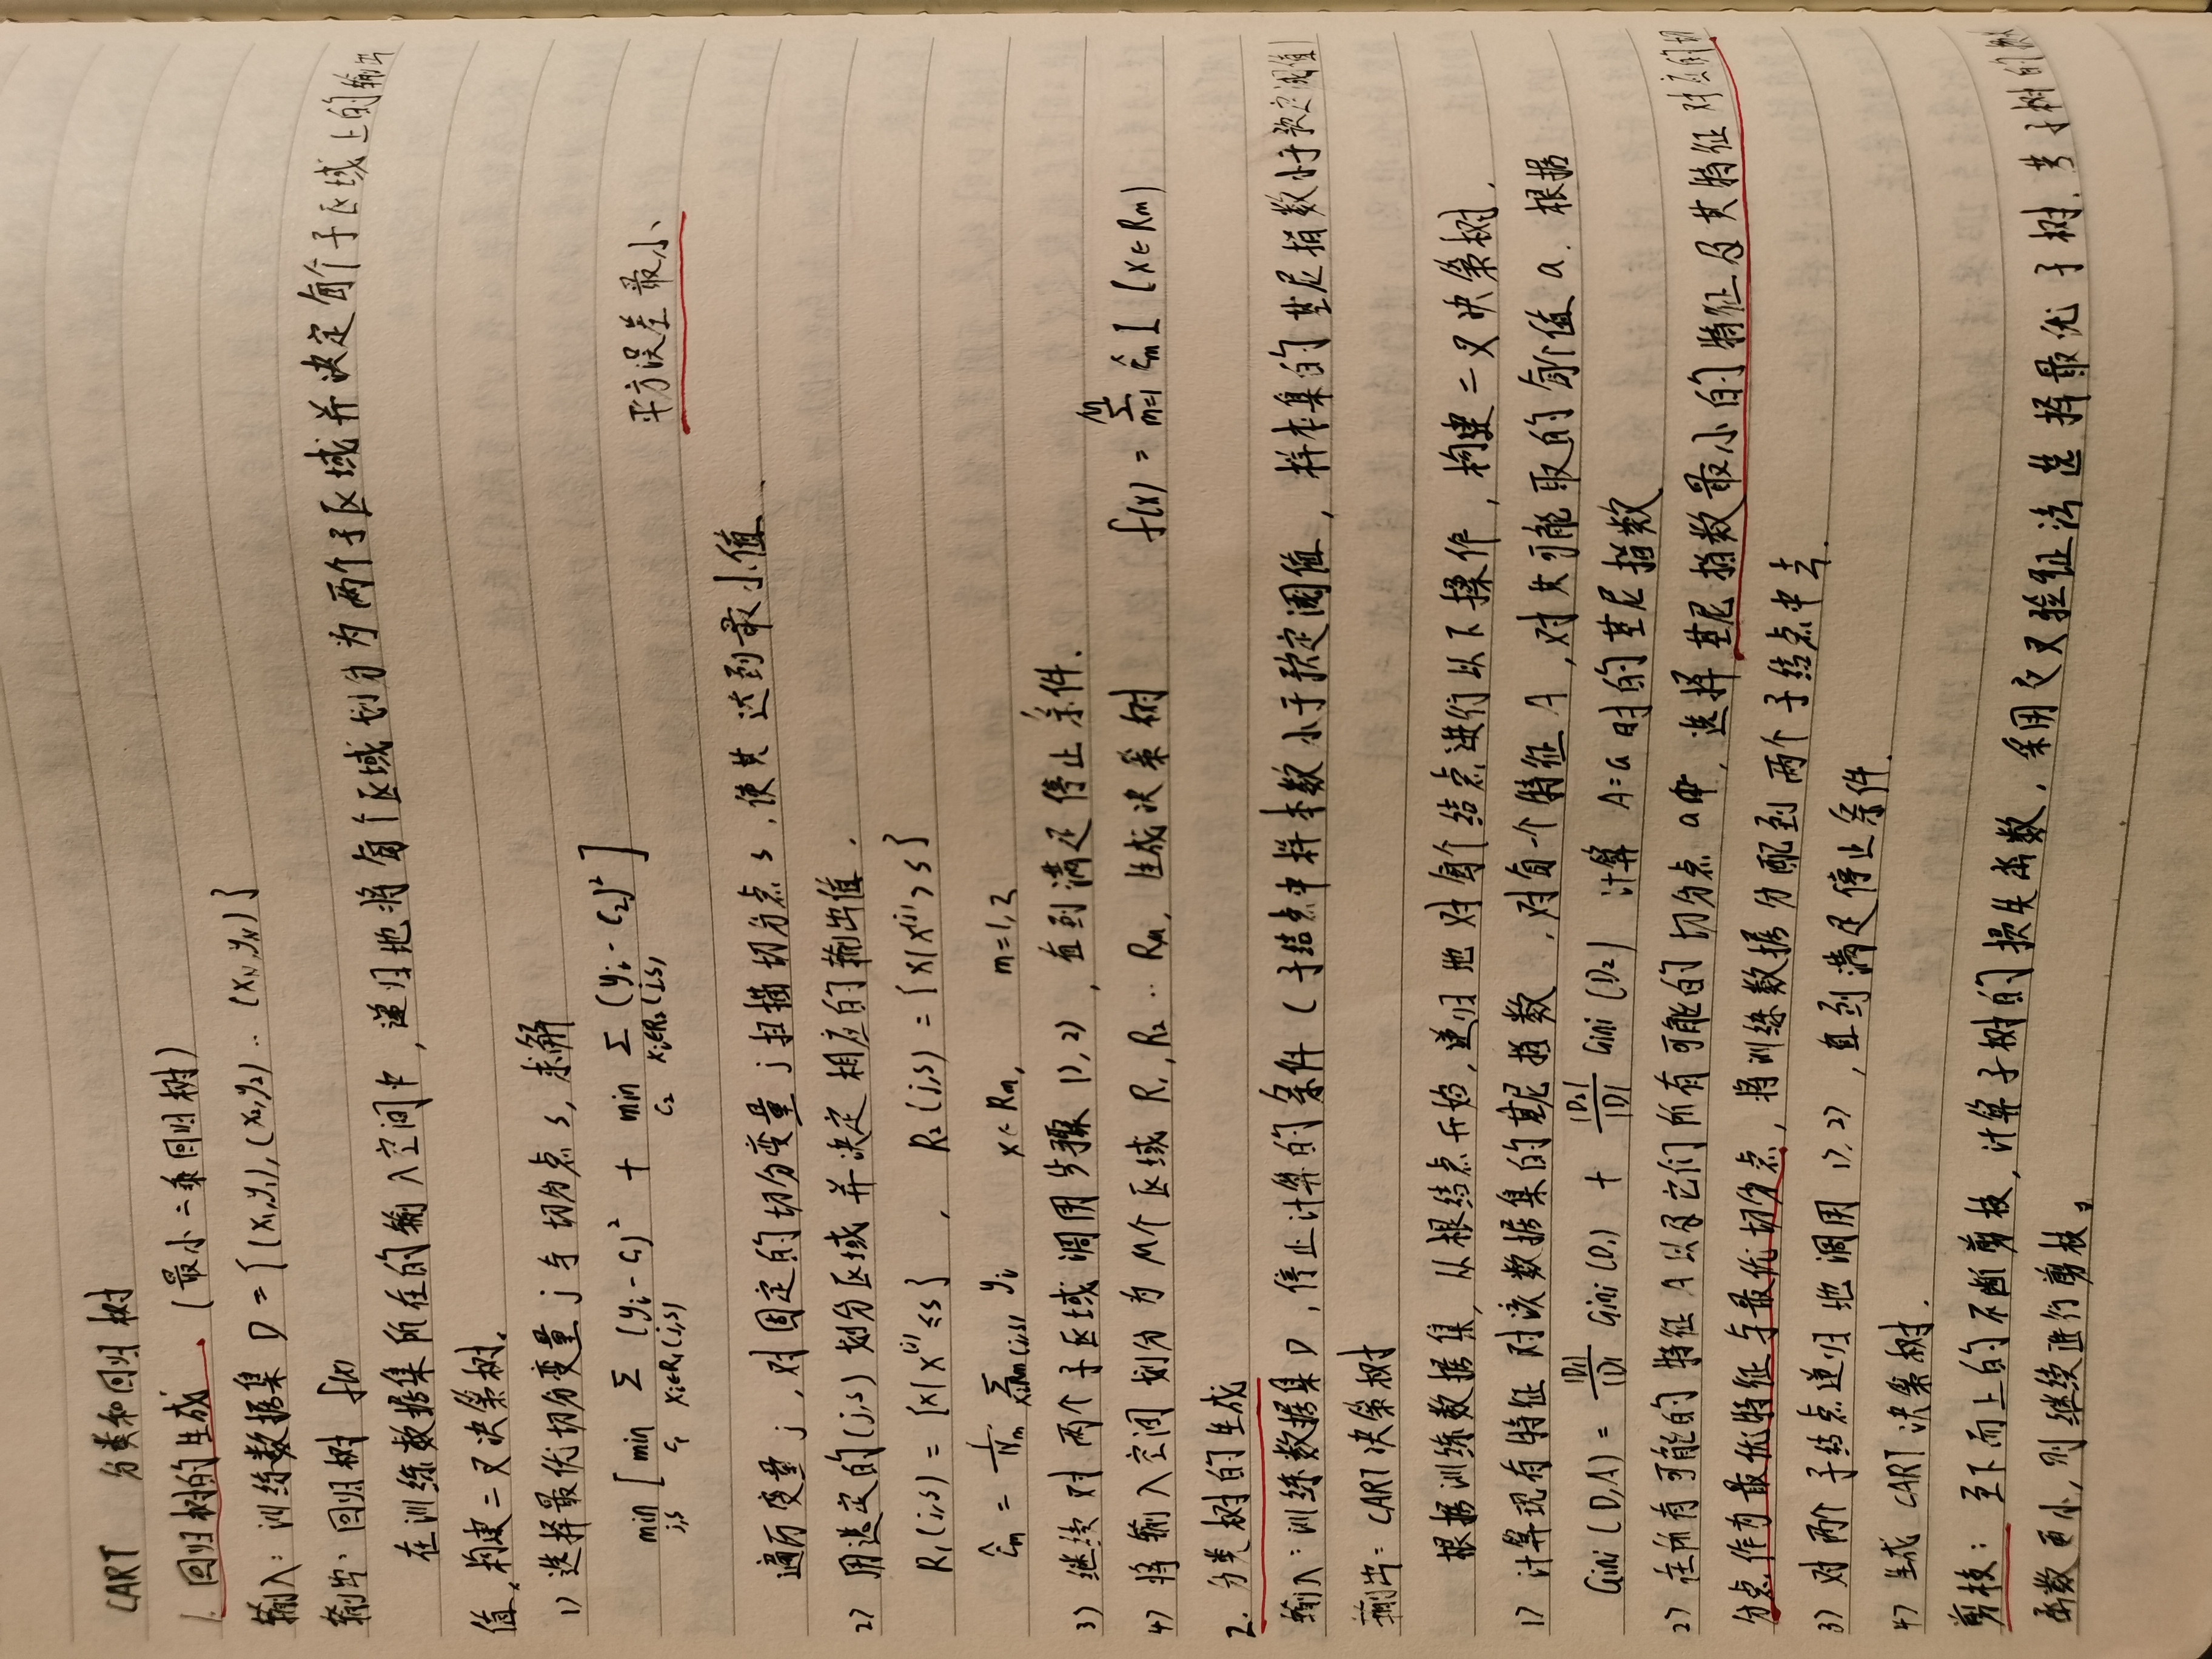 CART 分类和回归树
1. 回归树的生成. (最小二乘回归树)
输入: 训练数据集 D = {(x₁,y₁),(x₂,y₂)..(x_N,y_N)}
输出: 回归树 f(x)
在训练数据集所在的输入空间中, 递归地将每个区域划分为两个子区域并决定每个子区域上的输出
值,构建二叉决策树.
1) 选择最优切分变量 j 与切分点 s, 求解
min_{j,s} [ min_{c₁} Σ_{xᵢ∈R₁(j,s)} (yᵢ-c₁)² + min_{c₂} Σ_{xᵢ∈R₂(j,s)} (yᵢ-c₂)² ] 平方误差最小
遍历变量 j, 对固定的切分变量 j 扫描切分点 s, 使其达到最小值.
2) 用选定的(j,s)划分区域并决定相应的输出值.
R₁(j,s) = {x|x⁽ʲ⁾≤s}, R₂(j,s) = {x|x⁽ʲ⁾>s}
ĉₘ = 1/Nₘ Σ_{xᵢ∈Rₘ(j,s)} yᵢ x∈Rₘ, m=1,2
3) 继续对两个子区域调用步骤 1),2), 直到满足停止条件.
4) 将输入空间划分为M个区域 R₁,R₂..Rₘ, 生成决策树 f(x) = Σ_{m=1}^{M} ĉₘ I (x∈Rₘ)
2. 分类树的生成
输入: 训练数据集 D, 停止计算的条件 (子结点中样本数小于预定阈值, 样本集的基尼指数小于预定阈值)
输出: CART决策树
根据训练数据集, 从根结点开始, 递归地对每个结点进行以下操作, 构建二叉决策树.
1) 计算现有特征对该数据集的基尼指数, 对每一个特征A, 对其可能取的每个值a. 根据
Gini(D,A) = |D₁|/|D| Gini(D₁) + |D₂|/|D| Gini(D₂) 计算 A=a 时的基尼指数
2) 在所有可能的特征A以及它们所有可能的切分点a中, 选择基尼指数最小的特征及其特征对应的切
分点作为最优特征与最优切分点, 将训练数据分配到两个子结点中去.
3) 对两个子结点递归地调用 1),2), 直到满足停止条件.
4) 生成CART决策树.
剪枝: 至下而上的不断剪枝, 计算子树的损失函数, 采用交叉验证法选择最优子树. 若子树的损失
函数更小, 则继续进行剪枝。